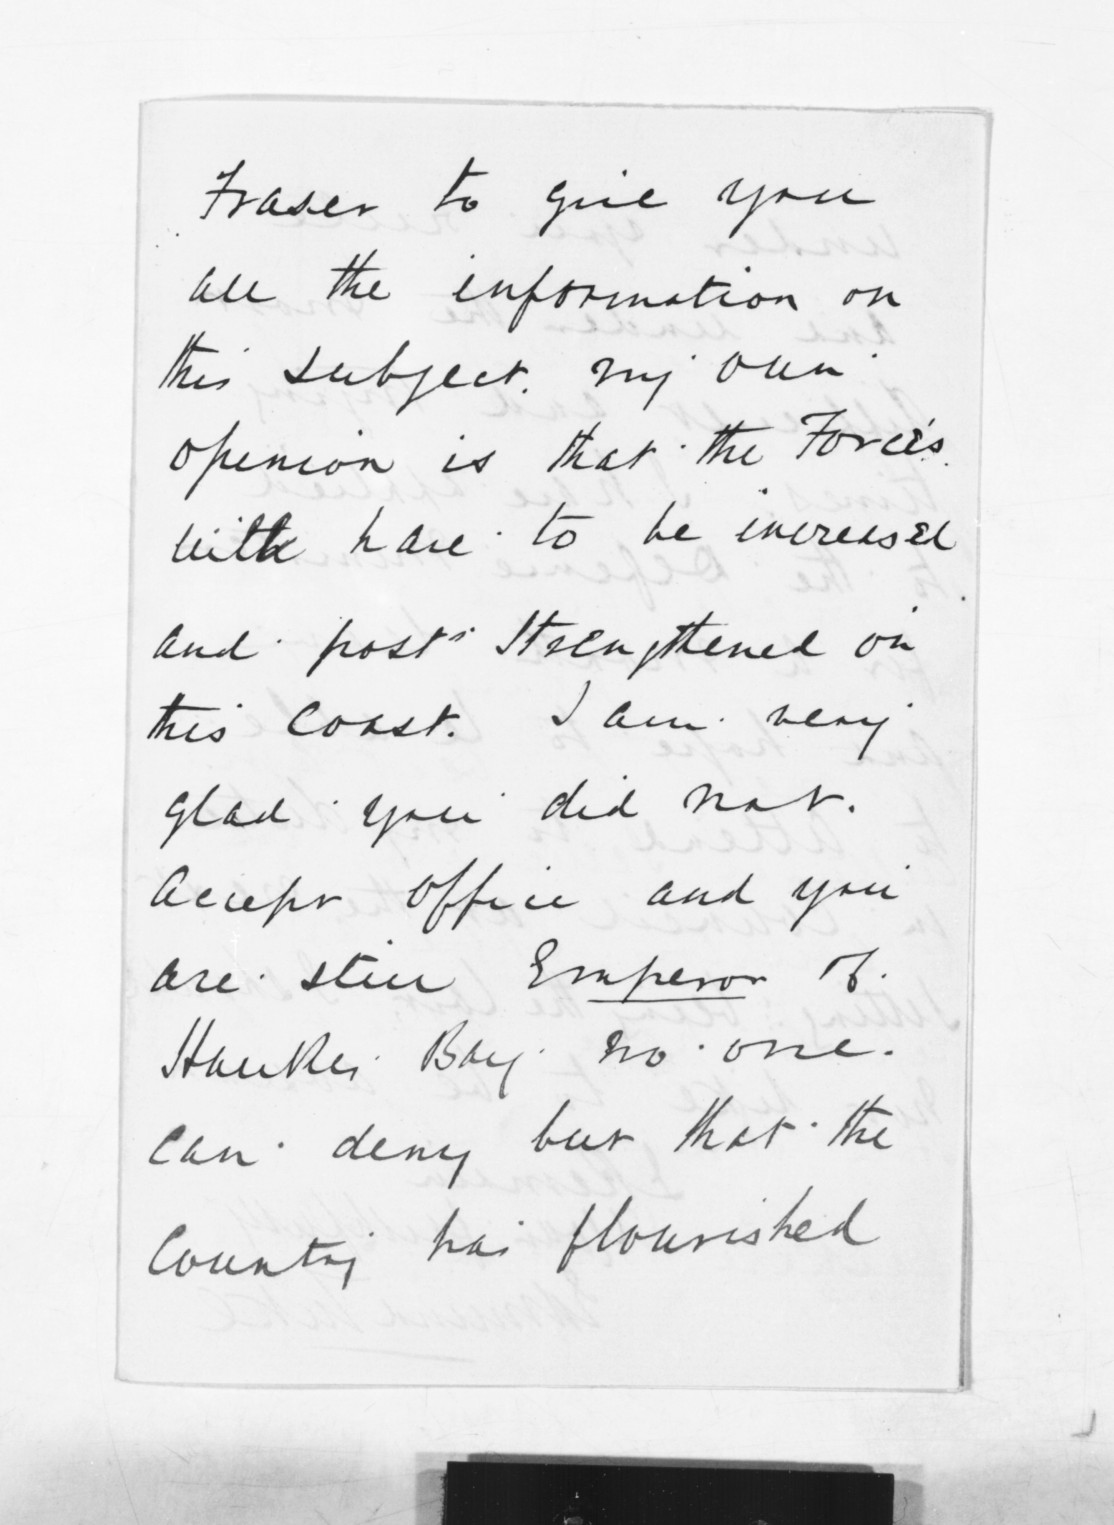 Fraser to give you
all the information on
this subject. My own
openion is that the Forces
will have to be increased
and posts strengthened on
this Coast. I am very
glad you did not
accept office and you
are still Emperor of
Hawkes Bay no one
can deny but that the
Country has flourished